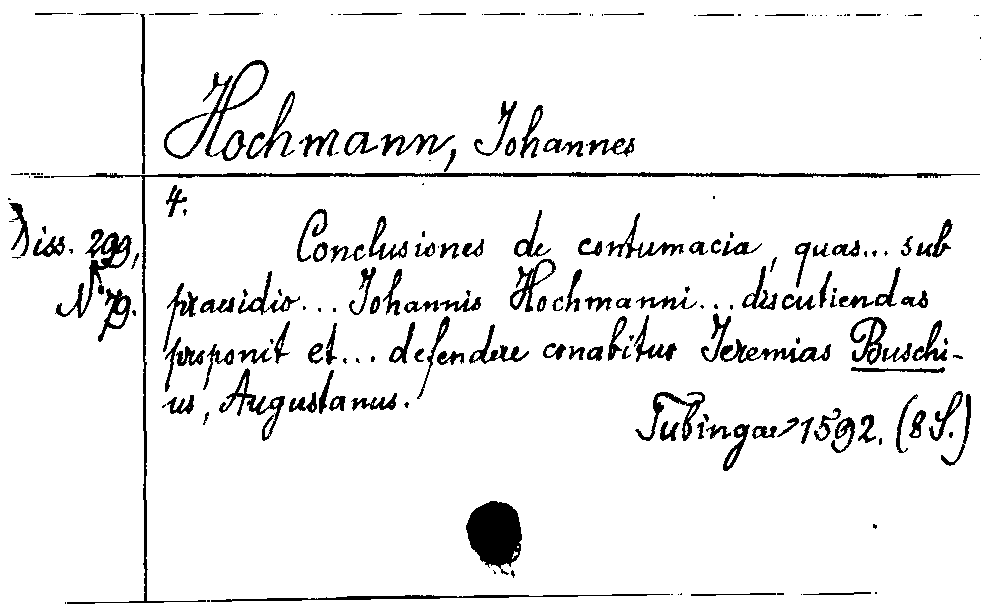 Hochmann, Johannes
4.
Diss. 299,
N° 79.
Conclusiones de contumacia, quas... sub
praesidio... Johannis Hochmanni... discutiendas
proponit et... defendere conabitur Jeremias Buschi-
us, Augustanus.
Tubingae 1592. (8 S.)